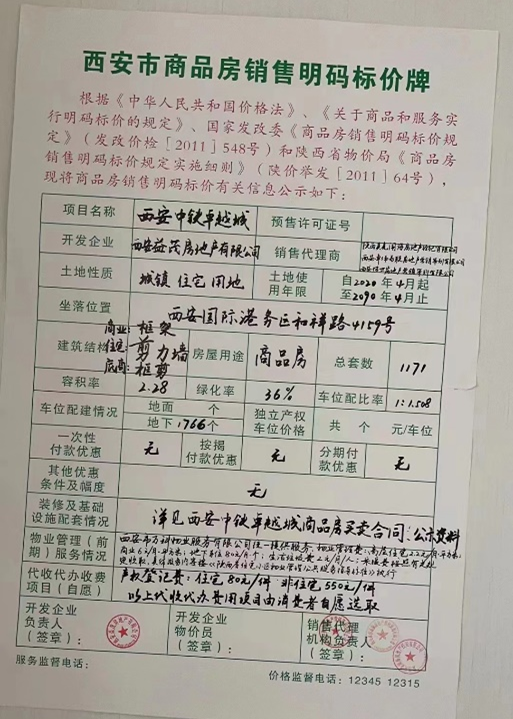 西安市商品房销售明码标价牌
根据《中华人民共和国价格法》、《关于商品和服务实
行明码标价的规定》、国家发改委《商品房销售明码标价规
定》（发改价检［2011］548号）和陕西省物价局《商品房
销售明码标价规定实施细则》（陕价举发［2011］64号），
现将商品房销售明码标价有关信息公示如下：
项目名称 西安中铁卓越城 预售许可证号
开发企业 西安益茂房地产有限公司 销售代理商
土地性质 城镇住宅用地 土地使用年限 自2020年4月起
至2090年4月止
坐落位置 西安国际港务区和祥路4159号
建筑结构 商业：框架
住宅：剪力墙
底商：框剪
房屋用途 商品房 总套数 1171
容积率 2.28 绿化率 36% 车位配比率 1:1.508
车位配建情况 地面 个
地下1766个
独立产权
车位价格 共 个 元/车位
一次性
付款优惠 无 按揭
付款优惠 无 分期付
款优惠 无
其他优惠
条件及幅度 无
装修及基础
设施配套情况 详见西安中铁卓越城商品房买卖合同：公示资料
物业管理（前
期）服务情况
代收代办收费
项目（自愿） 产权登记费：住宅80元/件 非住宅550元/件
以上代收代办费用项目由消费者自愿选取
开发企业
负责人
（签章）：
开发企业
物价员
（签章）：
销售代理
机构负责人
（签章）：
服务监督电话：
价格监督电话：12345 12315